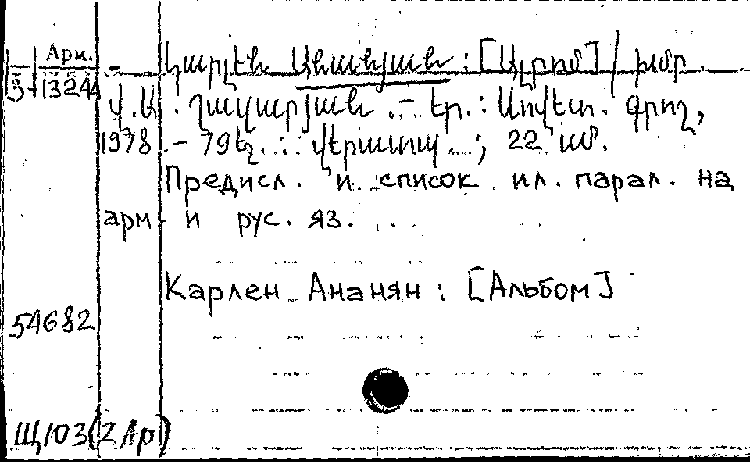 Арм.
3-1324
Կարլեն Անանյան : [Ալբոմ] / խմբ.
Վ.Ա. Շավարյան. – Եր. : Սովետ. գրող,
1978. – 79 էջ. : վերատպ. ; 22 սմ.
Предисл. и список ил. парал. на
арм. и рус. яз.
Карлен Ананян : [Альбом]
54682
Щ103(2Ар)